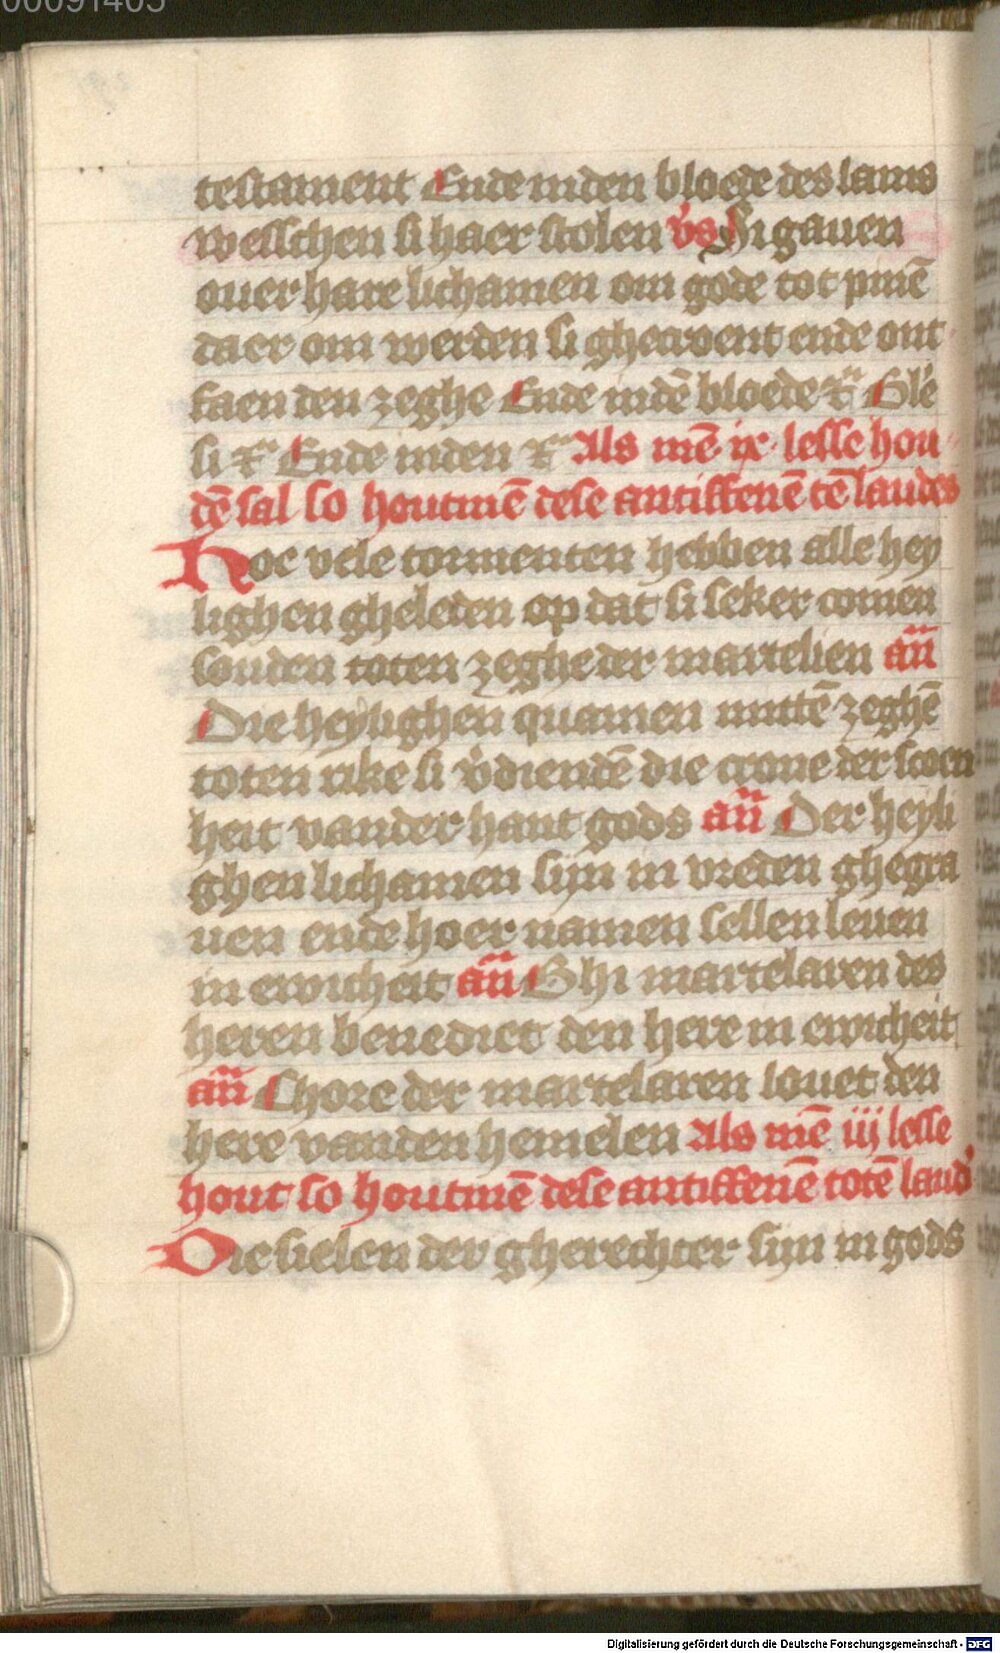 00091405
testament Ende inden bloede des lams
wesschen si haer stolen v̉s Si gauen
ouer hare lichamen om gode tot pinē
daer om werden si ghecroent ende ont
faen den zeghe Ende indē bloede rͣ Glẻ
si rͣ Ende inden rͣ Als mē ix lesse hou
dē sal so houtmē dese antiffenē tē laudes
Hoe vele tormenten hebben alle hey
lighen gheleden op dat si seker comen
souden toten zeghe der martelien an̄
Die heylighen quamen mittē zeghē
toten rike si v̉diendē die crone der scoen
heit vander hant gods an̄ Der heyli
ghen lichamen sijn in vreden ghegra
uen ende hoer namen sellen leuen
in ewicheit an̄ Ghi martelaren des
heren benedict den here in ewicheit
an̄ Chore der martelaren louet den
here vanden hemelen Als mē iij lesse
hout so houtmē dese antiffenē totē laud'
Die sielen der gherechter sijn in gods
Digitalisierung gefördert durch die Deutsche Forschungsgemeinschaft - DFG